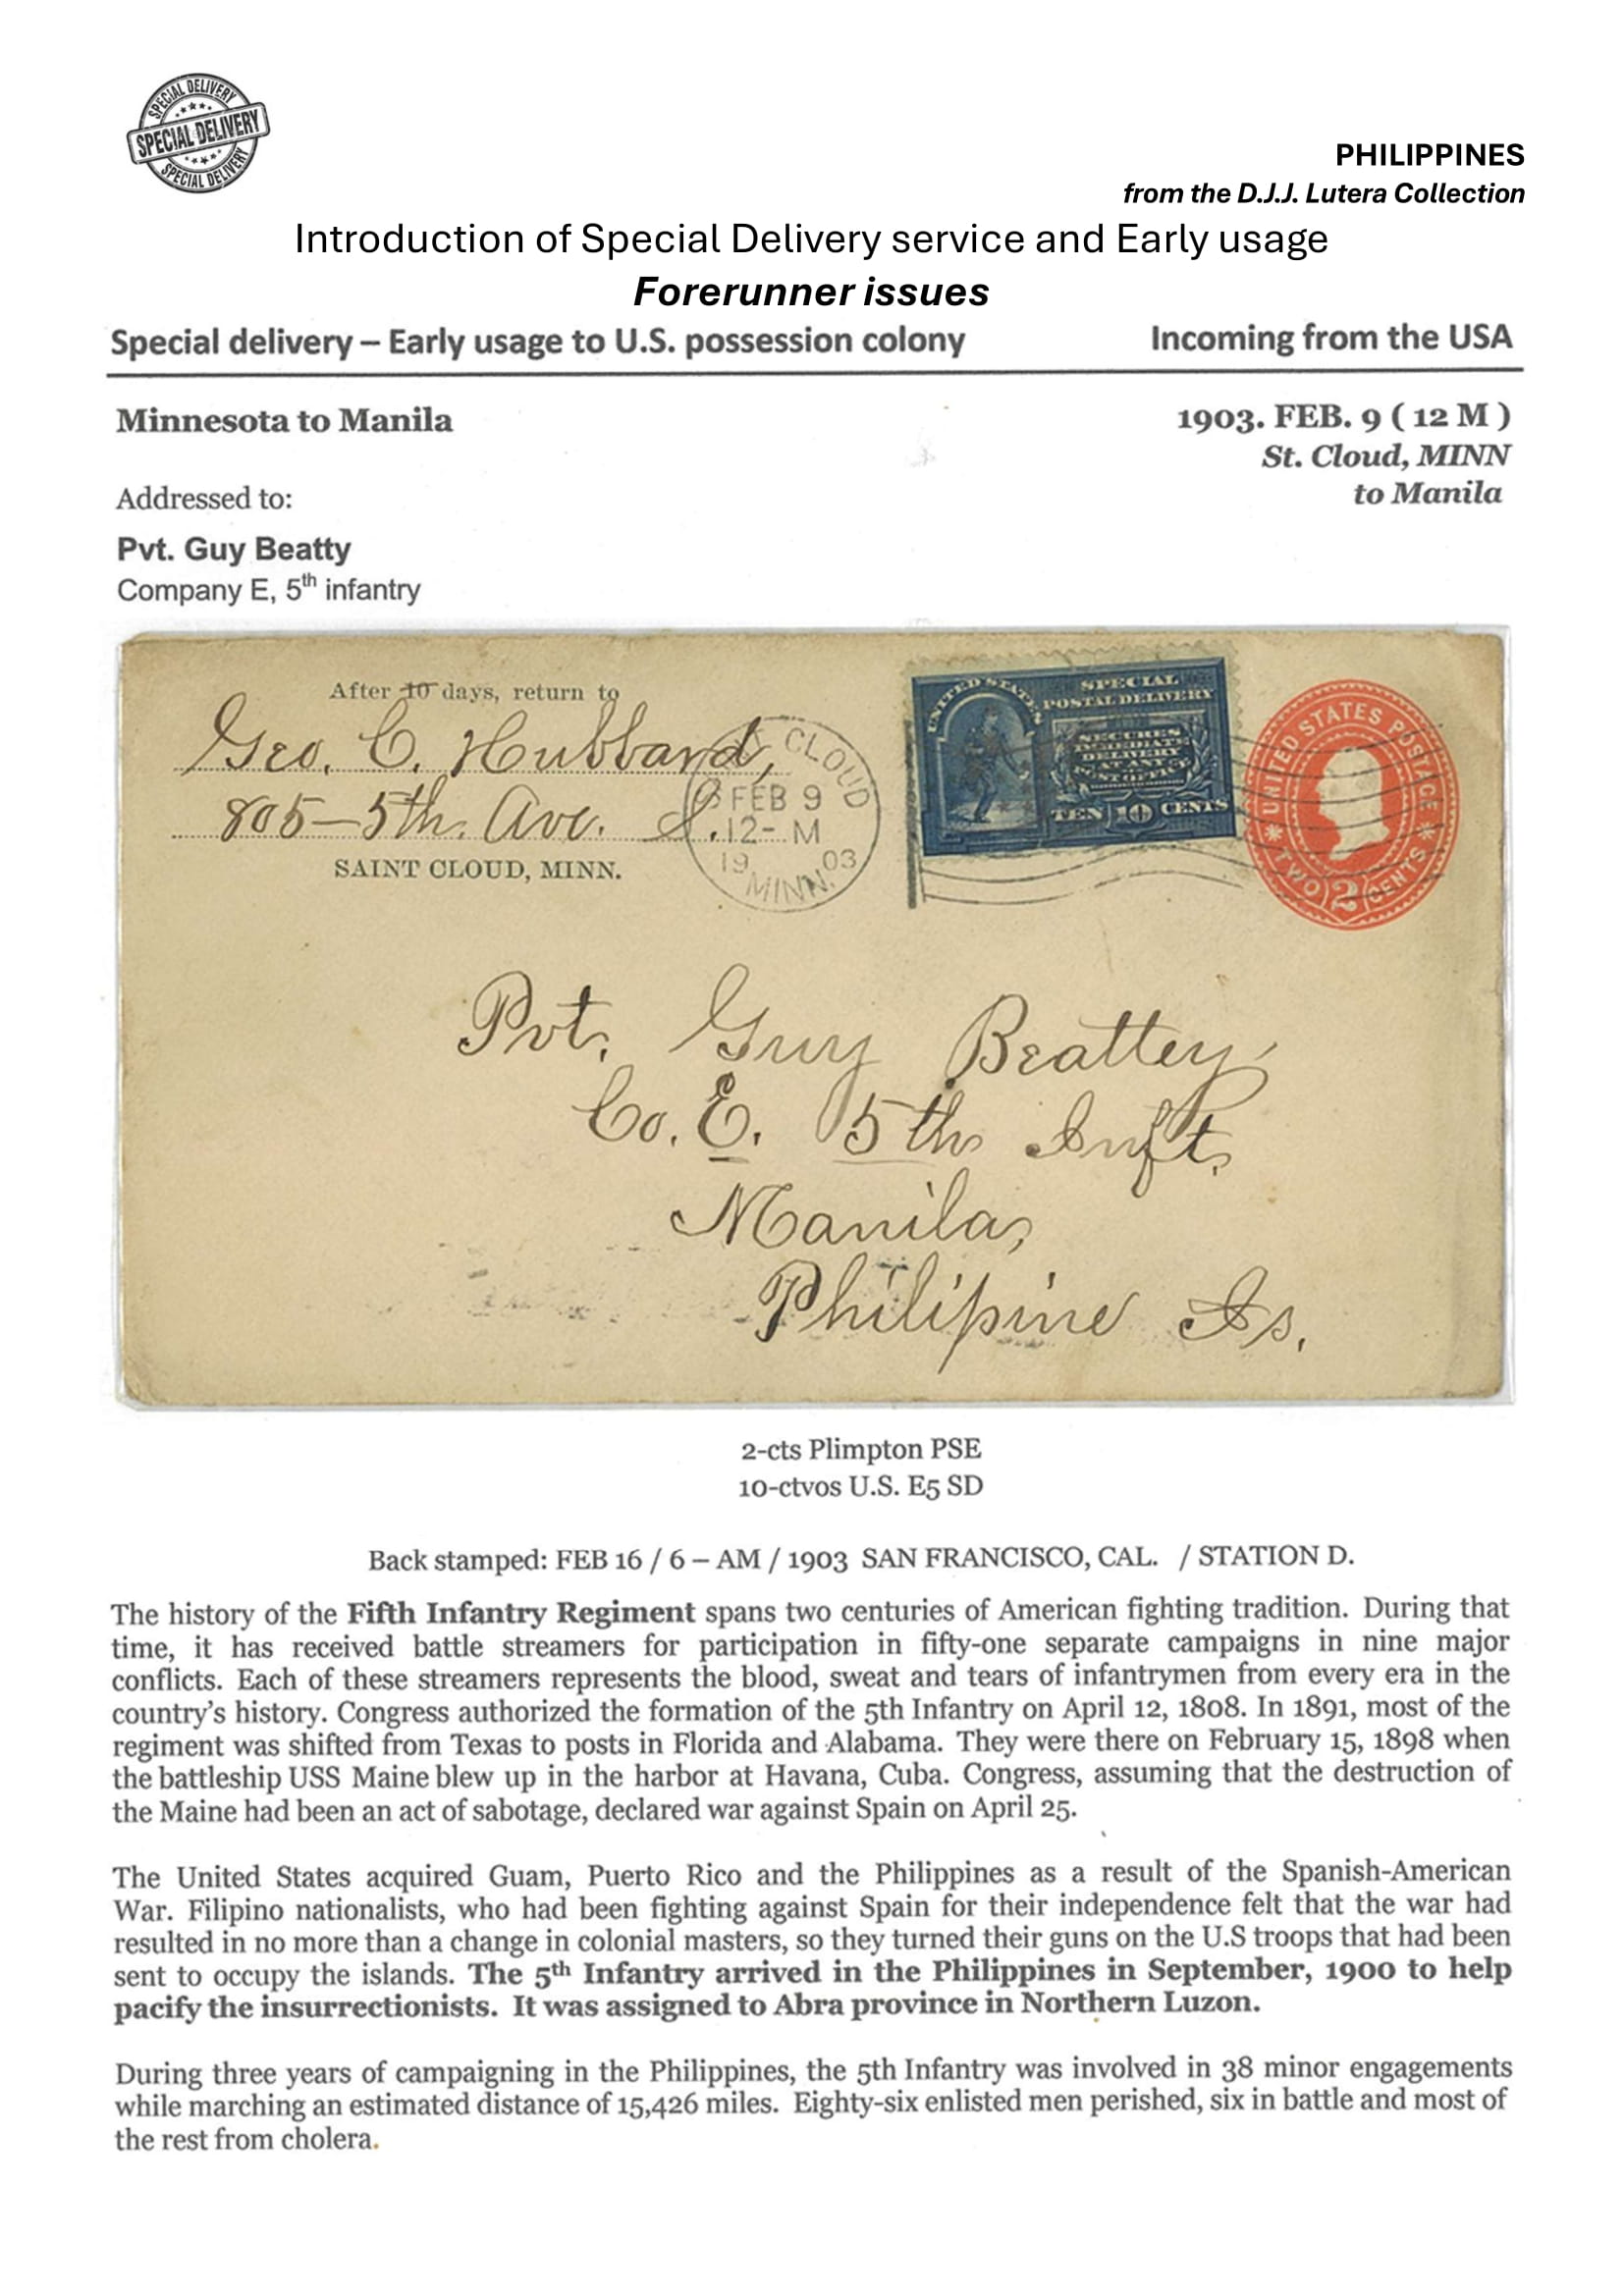 SPECIAL DELIVERY
SPECIAL DELIVERY
SPECIAL DELIVERY
PHILIPPINES
from the D.J.J. Lutera Collection
Introduction of Special Delivery service and Early usage
Forerunner issues
Special delivery – Early usage to U.S. possession colony
Incoming from the USA
Minnesota to Manila
1903. FEB. 9 ( 12 M )
St. Cloud, MINN
to Manila
Addressed to:
Pvt. Guy Beatty
Company E, 5th infantry
After 10 days, return to
Geo. C. Hubbard,
805–5th. Ave. S.
SAINT CLOUD, MINN.
CLOUD
FEB 9
12- M
19 03
MINN.
UNITED STATES
SPECIAL
POSTAL DELIVERY
SECURES
IMMEDIATE
DELIVERY
AT ANY
POST OFFICE
TEN 10 CENTS
UNITED STATES POSTAGE
TWO 2 CENTS
Pvt. Guy Beattey
Co. E. 5th Inft.
Manila,
Philipine Is.
2-cts Plimpton PSE
10-ctvos U.S. E5 SD
Back stamped: FEB 16 / 6 – AM / 1903 SAN FRANCISCO, CAL. / STATION D.
The history of the Fifth Infantry Regiment spans two centuries of American fighting tradition. During that
time, it has received battle streamers for participation in fifty-one separate campaigns in nine major
conflicts. Each of these streamers represents the blood, sweat and tears of infantrymen from every era in the
country's history. Congress authorized the formation of the 5th Infantry on April 12, 1808. In 1891, most of the
regiment was shifted from Texas to posts in Florida and Alabama. They were there on February 15, 1898 when
the battleship USS Maine blew up in the harbor at Havana, Cuba. Congress, assuming that the destruction of
the Maine had been an act of sabotage, declared war against Spain on April 25.
The United States acquired Guam, Puerto Rico and the Philippines as a result of the Spanish-American
War. Filipino nationalists, who had been fighting against Spain for their independence felt that the war had
resulted in no more than a change in colonial masters, so they turned their guns on the U.S troops that had been
sent to occupy the islands. The 5th Infantry arrived in the Philippines in September, 1900 to help
pacify the insurrectionists. It was assigned to Abra province in Northern Luzon.
During three years of campaigning in the Philippines, the 5th Infantry was involved in 38 minor engagements
while marching an estimated distance of 15,426 miles. Eighty-six enlisted men perished, six in battle and most of
the rest from cholera.